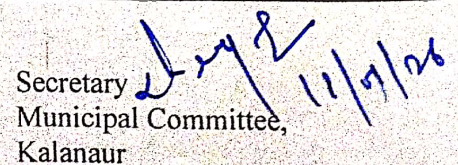 Secretary
Municipal Committee,
Kalanaur